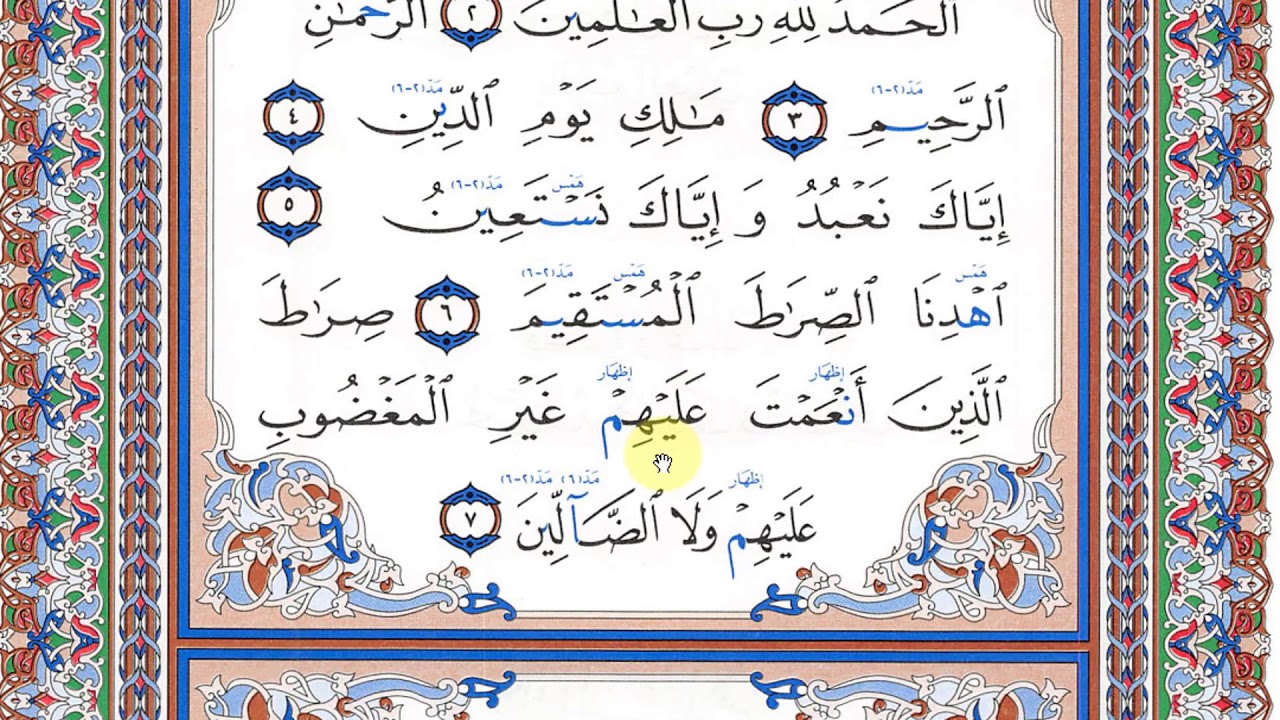 ٱلۡحَمۡدُ لِلَّهِ رَبِّ ٱلۡعَٰلَمِينَ ٢ ٱلرَّحۡمَٰنِ
مَدّ(٢-٦) مَدّ(٢-٦)
ٱلرَّحِيمِ ٣ مَٰلِكِ يَوۡمِ ٱلدِّينِ ٤
هَمْس مَدّ(٢-٦)
إِيَّاكَ نَعۡبُدُ وَ إِيَّاكَ نَسۡتَعِينُ ٥
هَمْس هَمْس مَدّ(٢-٦)
ٱهۡدِنَا ٱلصِّرَٰطَ ٱلۡمُسۡتَقِيمَ ٦ صِرَٰطَ
إظهَار إظهَار
ٱلَّذِينَ أَنۡعَمۡتَ عَلَيۡهِمۡ غَيۡرِ ٱلۡمَغۡضُوبِ
إظهَار مَدّ(٦) مَدّ(٢-٦)
عَلَيۡهِمۡ وَلَا ٱلضَّآلِّينَ ٧